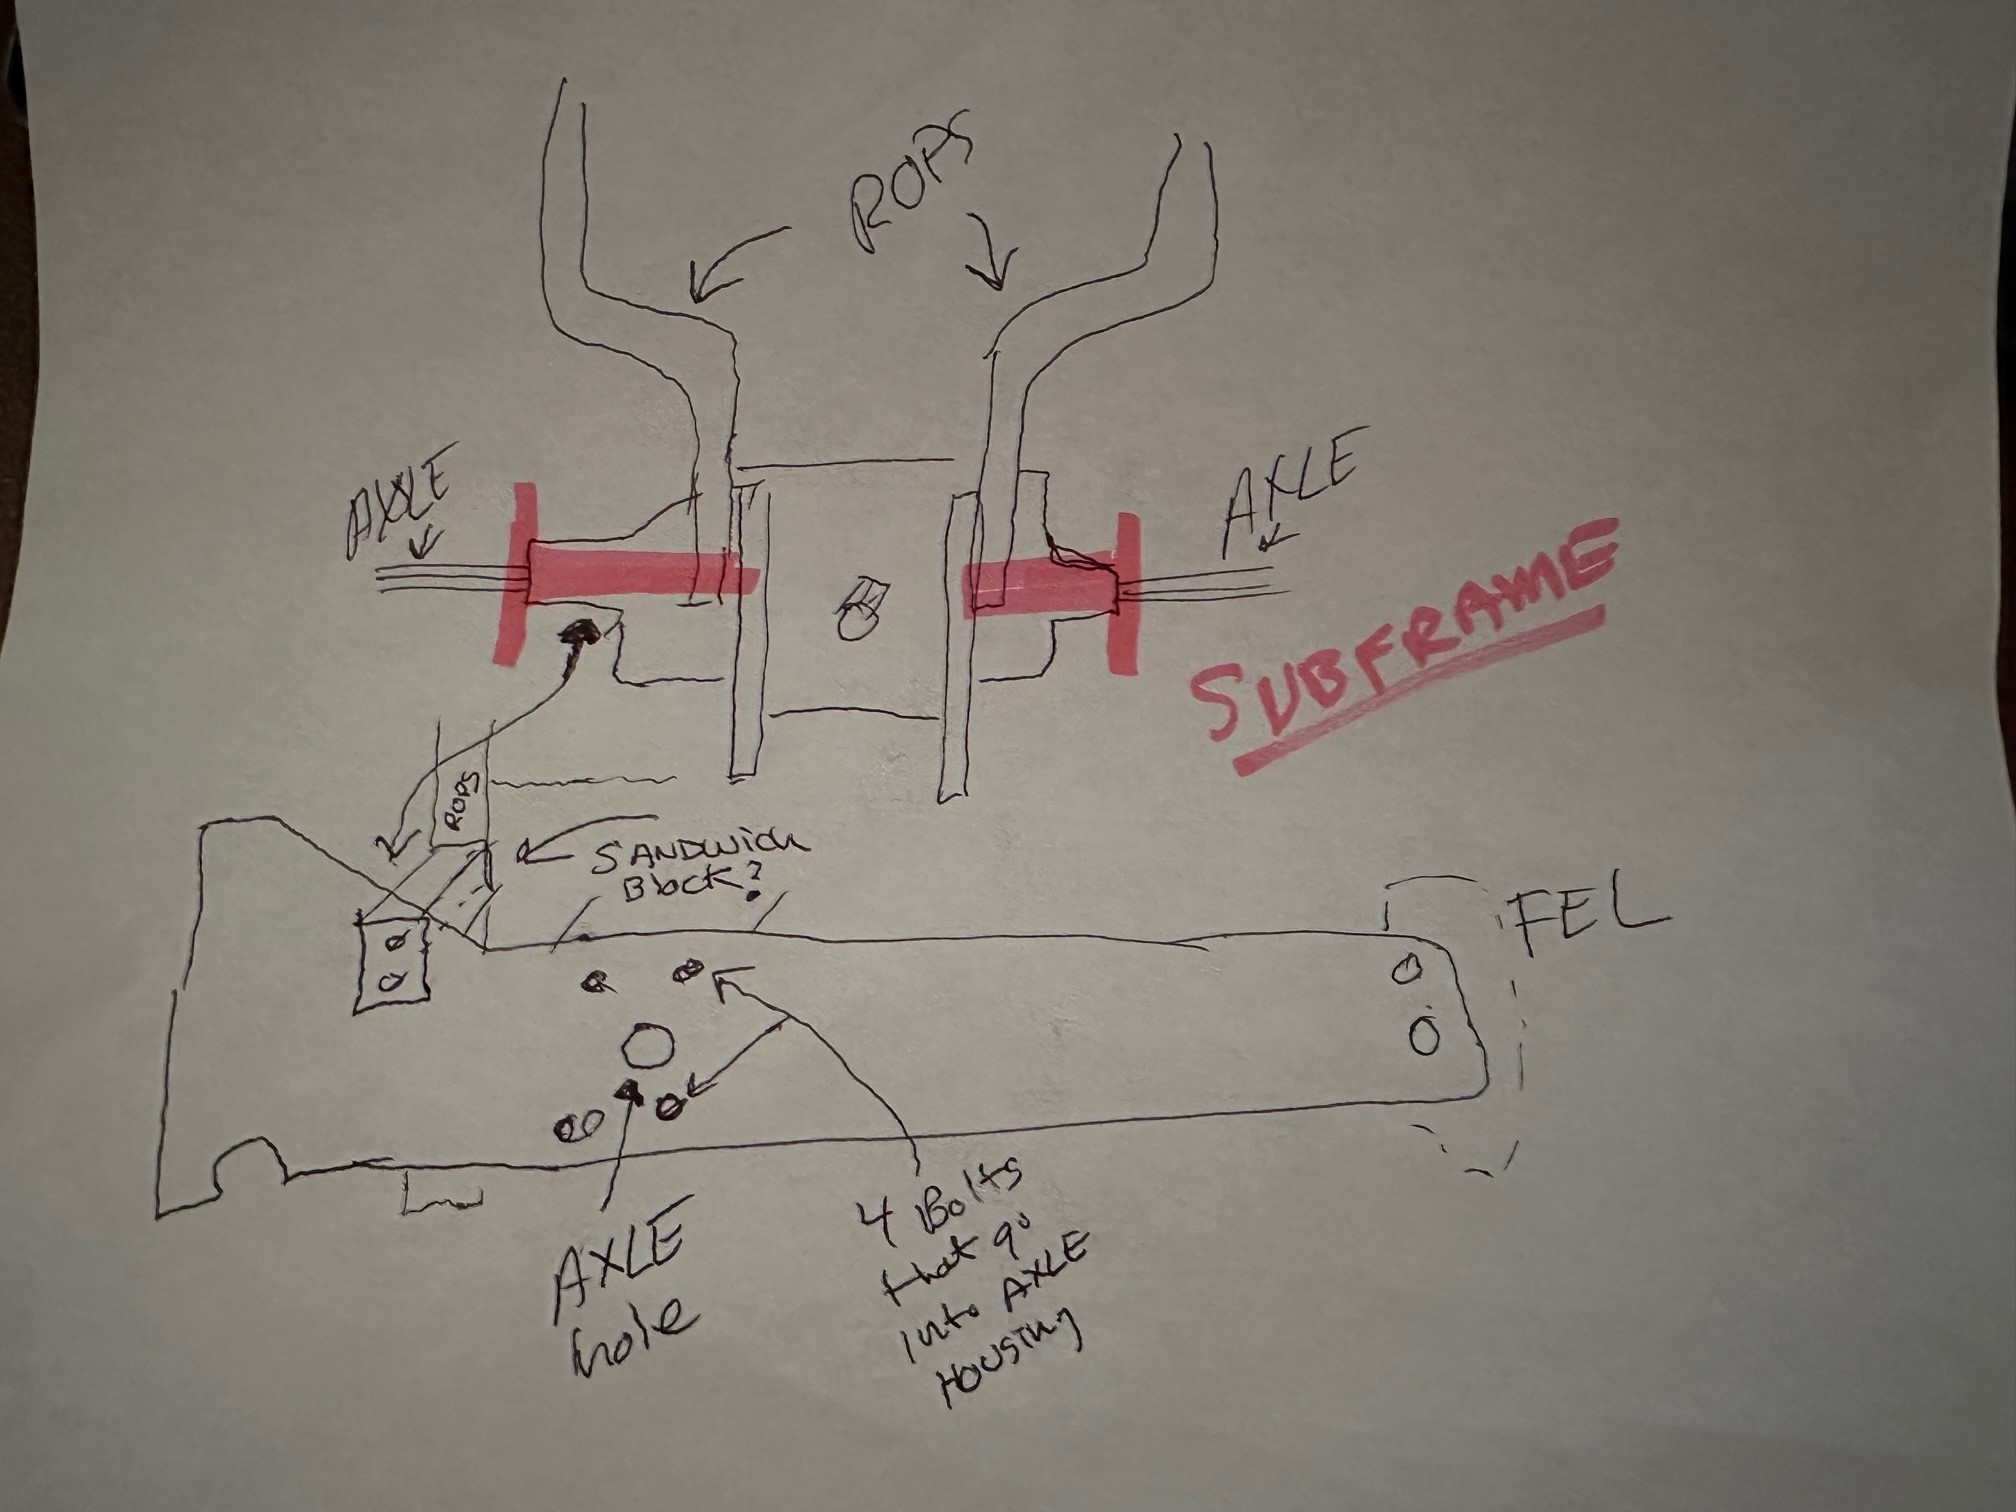 ROPS
AXLE
AXLE
SUBFRAME
ROPS
SANDWICH
Block?
FEL
AXLE
hole
4 Bolts
that go
into AXLE
HOUSING